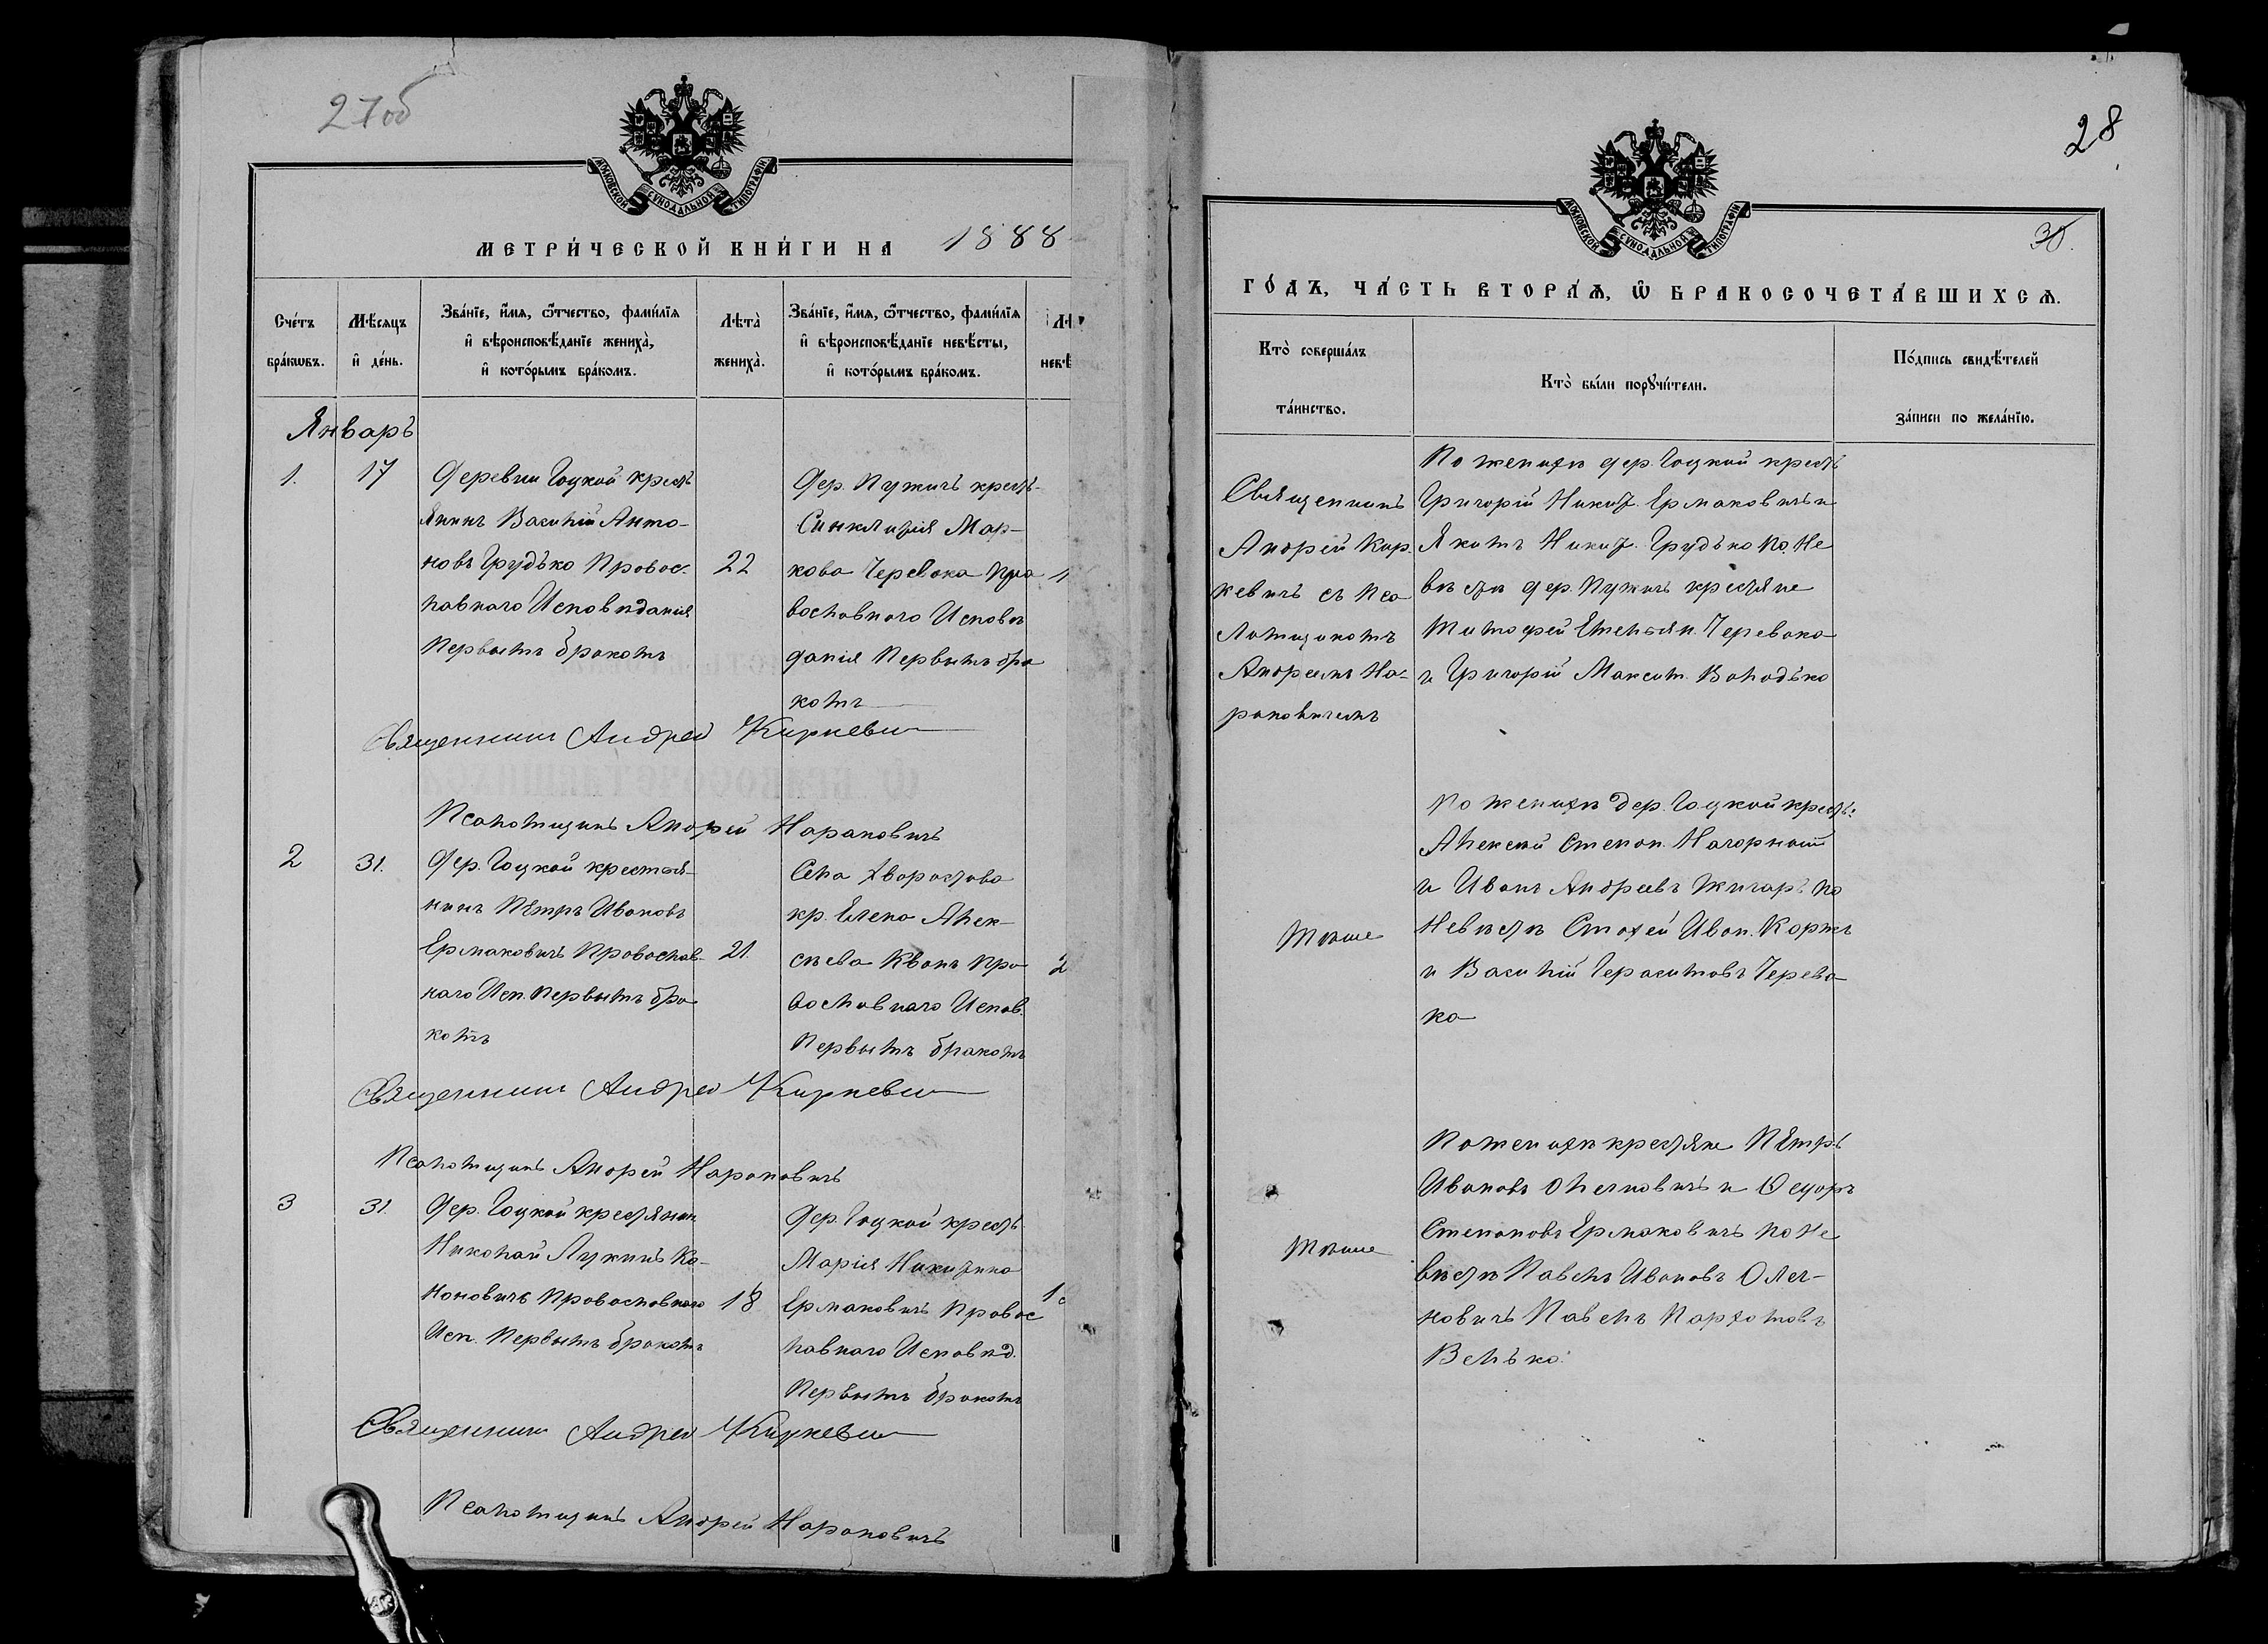 27об
МОСКОВСКОЙ СѴНОДАЛЬНОЙ ТИПОГРАФІИ
МЕТРИ́ЧЕСКОЙ КНИ́ГИ НА 1888
Сче́тъ бра́кωвъ.
Мѣ́сяцъ и҆ де́нь.
Зва́нїе, и҆́мѧ, ѻ҆́тчество, фами́лїѧ
и҆ вѣроисповѣ́данїе жениха̀,
и҆ кото́рымъ бра́комъ.
Лѣта̀ жениха̀.
Зва́нїе, и҆́мѧ, ѻ҆́тчество, фами́лїѧ
и҆ вѣроисповѣ́данїе невѣ́сты,
и҆ кото́рымъ бра́комъ.
Январь
1. 17
Деревни Гоцкой кресть
янинъ Василій Анто-
новъ Грудько Правос-
лавнаго Исповѣданія
Первымъ бракомъ
22
Дер. Пужичъ кресть-
Синклитія Мар-
кова Черевако Пра
вославнаго Исповѣ
данія Первымъ бра
комъ
Священникъ Андрей Киркевич
Псаломщикъ Андрей Нарановичъ
2 31.
Дер. Гоцкой крестья-
нинъ Пётръ Ивановъ
Ермаковичъ Православ-
наго Исп. Первымъ бра
комъ
21.
Села Хворостова
кр. Елена Алек-
сѣева Квонъ Пра
вославнаго Испов.
Первымъ бракомъ
2
Священникъ Андрей Киркевич
Псаломщикъ Андрей Нарановичъ
3 31.
Дер. Гоцкой крестянин
Николай Лукинъ Ко-
ноновичъ Православнаго
Исп. Первымъ бракомъ
18
Дер. Гоцкой кресть
Марія Никитина
Ермаковичъ Правос
лавнаго Исповѣд.
Первымъ бракомъ
Священникъ Андрей Киркевич
Псаломщикъ Андрей Нарановичъ
28
МОСКОВСКОЙ СѴНОДАЛЬНОЙ ТИПОГРАФІИ
30.
ГО́ДЪ, ЧА́СТЬ ВТОРА́Ѧ, Ѽ БРАКОСОЧЕТА́ВШИХСѦ.
Кто̀ соверша́лъ
та́инство.
Кто̀ бы́ли порꙋчи́тели.
По́дпись свидѣ́телей
за́писи по жела́нїю.
Священникъ
Андрей Кир-
кевичъ съ Пса
ломщикомъ
Андреемъ На-
рановичемъ
По женихѣ дер. Гоцкой кресть
Григорій Никит. Ермаковичъ и
Якимъ Никит. Грудько по Не
вѣстѣ дер. Пужичъ крестяне
Тимофей Емельян. Черевако
и Григорій Максим. Володько
Тѣже
По женихѣ дер. Гоцкой кресть:
Алексѣй Степан. Нагорный
и Иванъ Андреевъ Жигаръ по
Невѣстѣ Стахей Иван. Коржъ
и Василій Герасимовъ Черева
ко
Тѣже
По женихѣ крестяне Пётръ
Ивановъ Олехновичъ и Ѳедоръ
Степановъ Ермаковичъ по Не
вѣстѣ Павелъ Ивановъ Олех-
новичъ Павелъ Парфомовъ
Велько.